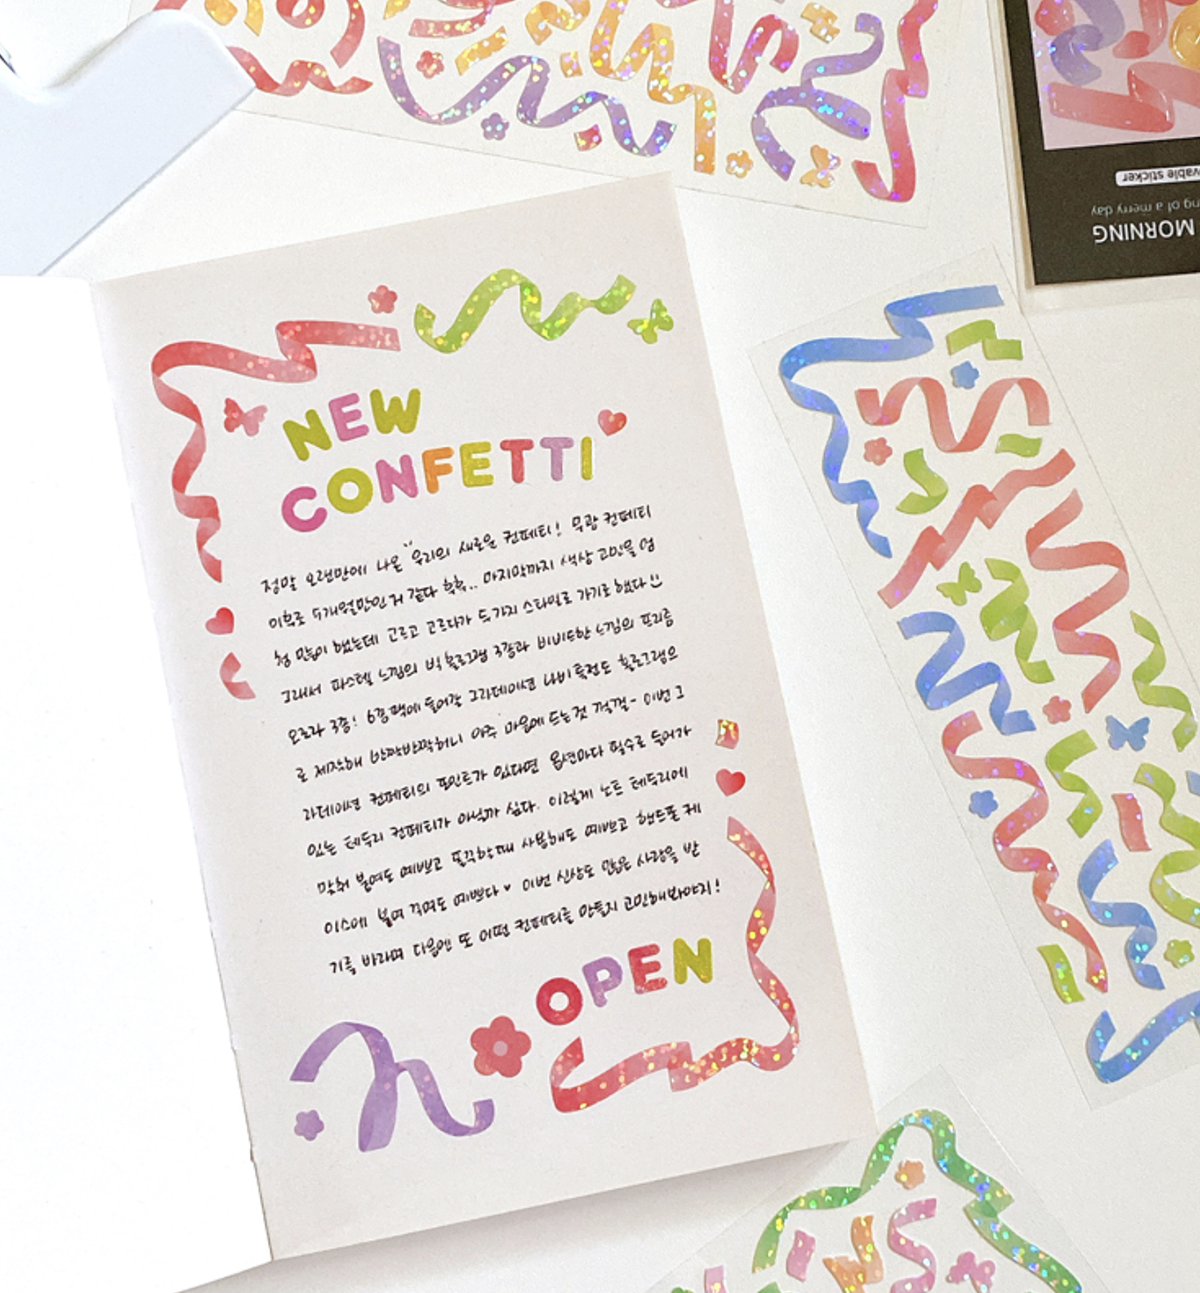 NEW
CONFETTI
정말 오랜만에 나온 "우리의 새로운 컨페티! 무광 컨페티
이후로 5개월만인거 같다 흑흑.. 마지막까지 색상 고민을 엄
청 많이 했는데 고르고 고르다가 두가지 스타일로 가기로 했다
그래서 파스텔 느낌의 빅 홀로그램 3종과 비비드한 느낌의 프리즘
오로라 3종! 6종팩에 들어갈 그라데이션 나비 홀로그램으
로 제작해 반짝반짝하니 아주 마음에 드는 것 껄껄~ 이번 그
라데이션 컨페티의 포인트가 있다면 옵션마다 필수로 들어가
있는 테두리 컨페티가 아닐까 싶다. 이렇게 노트 테두리에
맞춰 붙여도 예쁘고 또 각할때 사용해도 예쁘고 핸드폰 케
이스에 붙여 꾸며도 예쁘다♥ 이번 신상도 많은 사랑을 받
기를 바라며 다음엔 또 어떤 컨페티를 만들지 고민해봐야지!
OPEN
MORNING
ng of a merry day
vable sticker